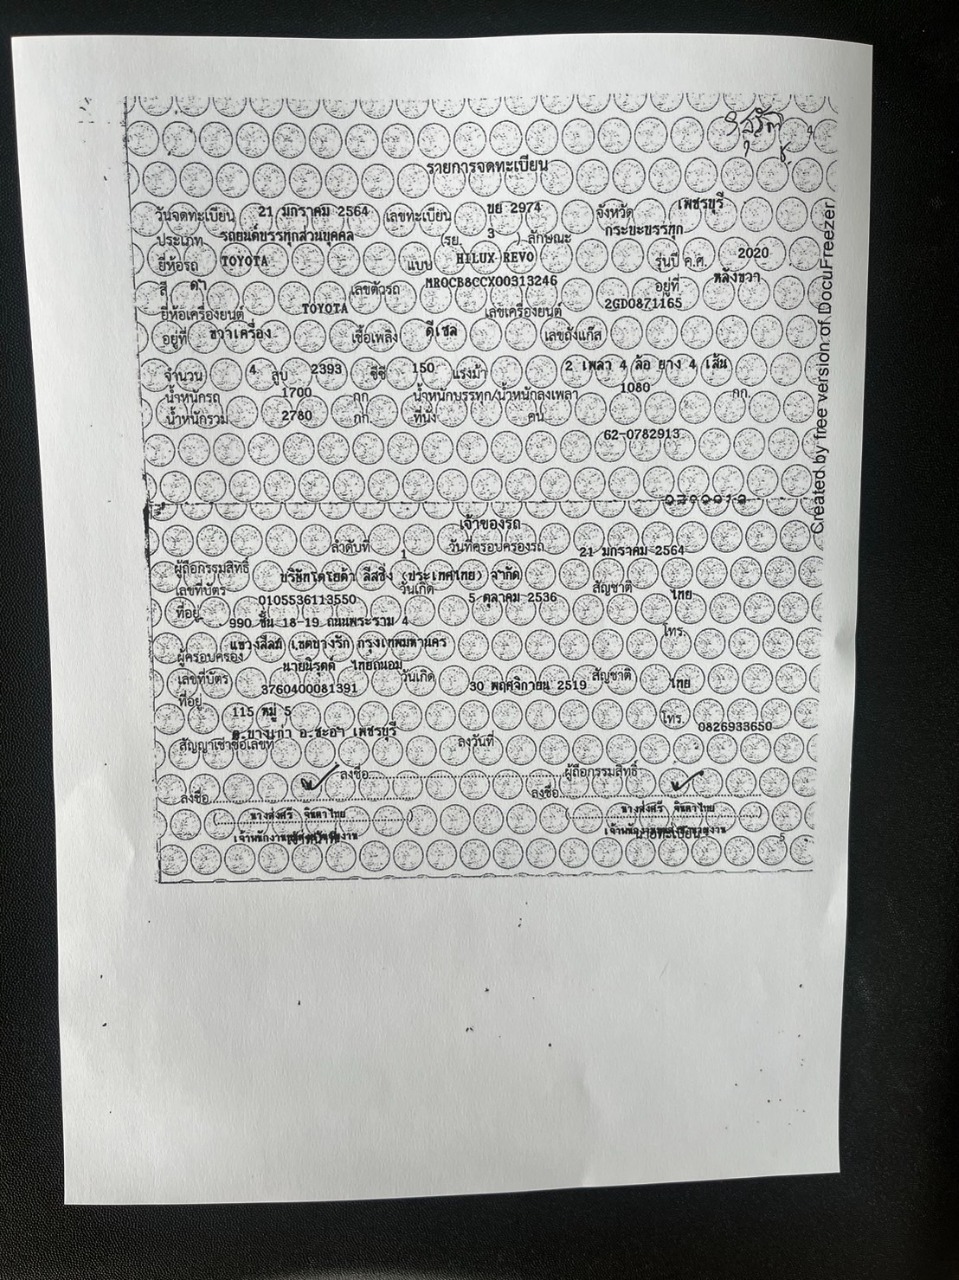 รายการจดทะเบียน
วันจดทะเบียน 21 มกราคม 2564 เลขทะเบียน ขย 2974 จังหวัด เพชรบุรี
ประเภท รถยนต์บรรทุกส่วนบุคคล (รย. 3 ) ลักษณะ กระบะบรรทุก
ยี่ห้อรถ TOYOTA แบบ HILUX REVO รุ่นปี ค.ศ. 2020
สี ดำ เลขตัวรถ MR0CB8CCX00313246 อยู่ที่ หลังขวา
ยี่ห้อเครื่องยนต์ TOYOTA เลขเครื่องยนต์ 2GD0871165
อยู่ที่ ขวาเครื่อง เชื้อเพลิง ดีเซล เลขถังแก๊ส
จำนวน 4 สูบ 2393 ซีซี 150 แรงม้า 2 เพลา 4 ล้อ ยาง 4 เส้น
น้ำหนักรถ 1700 กก. น้ำหนักบรรทุก/น้ำหนักลงเพลา 1080 กก.
น้ำหนักรวม 2780 กก. ที่นั่ง คน
62-0782913
เจ้าของรถ
ลำดับที่ 1 วันที่ครอบครองรถ 21 มกราคม 2564
ผู้ถือกรรมสิทธิ์ บริษัทโตโยต้า ลีสซิ่ง (ประเทศไทย) จำกัด
เลขที่บัตร 0105536113550 วันเกิด 5 ตุลาคม 2536 สัญชาติ ไทย
ที่อยู่ 990 ชั้น 18-19 ถนนพระราม 4
แขวงสีลม เขตบางรัก กรุงเทพมหานคร โทร.
ผู้ครอบครอง นายนิรุตต์ ไทยถนอม
เลขที่บัตร 3760400081391 วันเกิด 30 พฤศจิกายน 2519 สัญชาติ ไทย
ที่อยู่ 115 หมู่ 5
ต.บางเก่า อ.ชะอำ เพชรบุรี โทร. 0826933650
สัญญาเช่าซื้อเลขที่ ลงวันที่
ลงชื่อ ผู้ถือกรรมสิทธิ์
ลงชื่อ ลงชื่อ
(นางส่งศรี จินดาไทย) (นางส่งศรี จินดาไทย)
นายทะเบียน
5
Created by free version of DocuFreezer